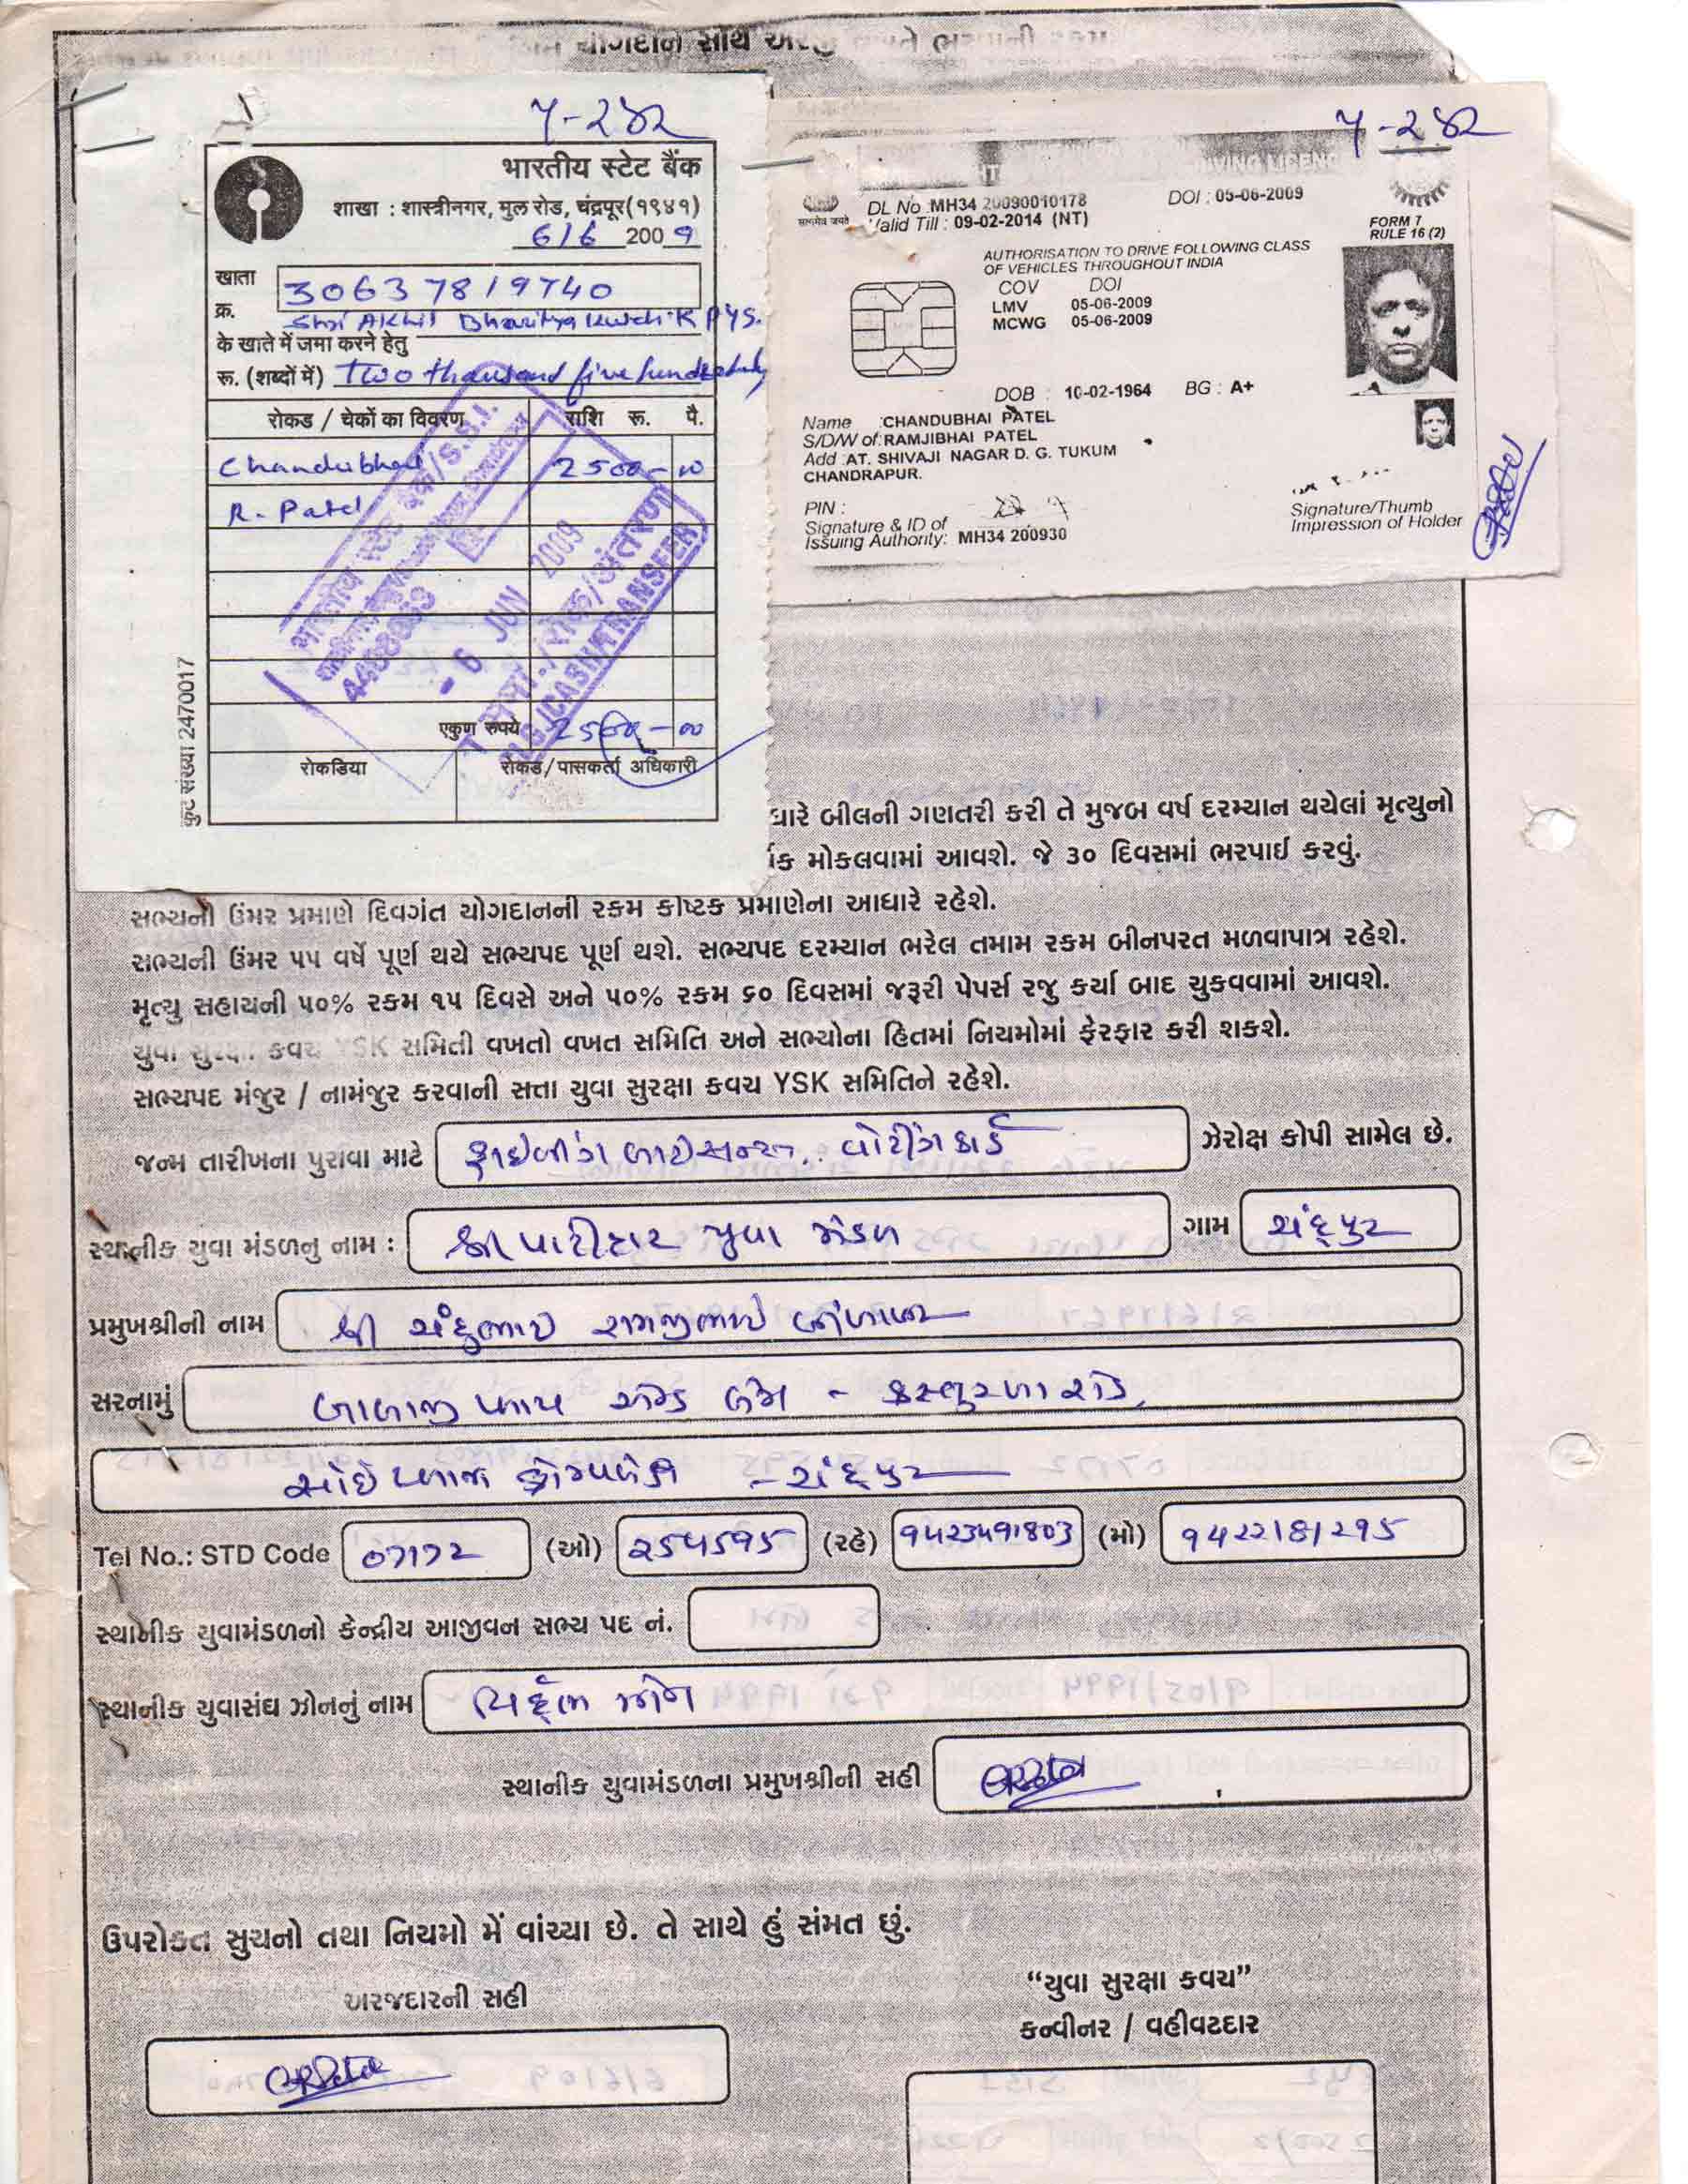 યોગદાન સાથે
૫-૨૪૨
भारतीय स्टेट बैंक
शाखा : शास्त्रीनगर, मुल रोड, चंद्रपूर(१९४१)
6/6 2009
खाता
क्र.
30637819740
Shri Akhil Bhartiya Kutch K P Y S.
के खाते में जमा करने हेतु
रू. (शब्दों में) Two thousand five hundred only
रोकड / चेकों का विवरण राशि रू. पै.
Chandubhai 2500-00
R. Patel
- 6 JUN 2009
एकुण रुपये 2500-00
रोकडिया रोकड/पासकर्ता अधिकारी
कुट संख्या 2470017
૫-૨૪૨
DRIVING LICENC
सत्यमेव जयते
DL No MH34 20090010178 DOI : 05-06-2009
Valid Till : 09-02-2014 (NT)
FORM 7
RULE 16 (2)
AUTHORISATION TO DRIVE FOLLOWING CLASS
OF VEHICLES THROUGHOUT INDIA
COV DOI
LMV 05-06-2009
MCWG 05-06-2009
DOB : 10-02-1964 BG : A+
Name :CHANDUBHAI PATEL
S/D/W of:RAMJIBHAI PATEL
Add :AT. SHIVAJI NAGAR D. G. TUKUM
CHANDRAPUR.
PIN :
Signature & ID of
Issuing Authority: MH34 200930
Signature/Thumb
Impression of Holder
ધારે બીલની ગણતરી કરી તે મુજબ વર્ષ દરમ્યાન થયેલાં મૃત્યુનો
ર્ક મોકલવામાં આવશે. જે ૩૦ દિવસમાં ભરપાઈ કરવું.
સભ્યની ઉંમર પ્રમાણે દિવગંત યોગદાનની રકમ કોષ્ટક પ્રમાણેના આધારે રહેશે.
સભ્યની ઉંમર ૫૫ વર્ષે પૂર્ણ થયે સભ્યપદ પૂર્ણ થશે. સભ્યપદ દરમ્યાન ભરેલ તમામ રકમ બીનપરત મળવાપાત્ર રહેશે.
મૃત્યુ સહાયની ૫૦% રકમ ૧૫ દિવસે અને ૫૦% રકમ ૬૦ દિવસમાં જરૂરી પેપર્સ રજુ કર્યા બાદ ચુકવવામાં આવશે.
યુવા સુરક્ષા કવચ YSK સમિતી વખતો વખત સમિતિ અને સભ્યોના હિતમાં નિયમોમાં ફેરફાર કરી શકશે.
સભ્યપદ મંજુર / નામંજુર કરવાની સત્તા યુવા સુરક્ષા કવચ YSK સમિતિને રહેશે.
જન્મ તારીખના પુરાવા માટે ડ્રાઇવીંગ લાઇસન્સ.. વોટીંગ કાર્ડ ઝેરોક્ષ કોપી સામેલ છે.
સ્થાનીક યુવા મંડળનુ નામ : શ્રી પાટીદાર યુવા મંડળ ગામ ચંદ્રપુર
પ્રમુખશ્રીની નામ શ્રી ચંદુભાઇ રામજીભાઇ
સરનામું બાલાજી પ્લાય એન્ડ લેમ - કસ્તુરબા રોડ,
ચંદ્રપુર
Tel No.: STD Code 07172 (ઓ) 254595 (રહે) 9423491803 (મો) 9422181295
સ્થાનીક યુવામંડળનો કેન્દ્રીય આજીવન સભ્ય પદ નં.
સ્થાનીક યુવાસંઘ ઝોનનું નામ વિદર્ભ ઝોન
સ્થાનીક યુવામંડળના પ્રમુખશ્રીની સહી
ઉપરોક્ત સુચનો તથા નિયમો મેં વાંચ્યા છે. તે સાથે હું સંમત છું.
અરજદારની સહી
“યુવા સુરક્ષા કવચ”
કન્વીનર / વહીવટદાર